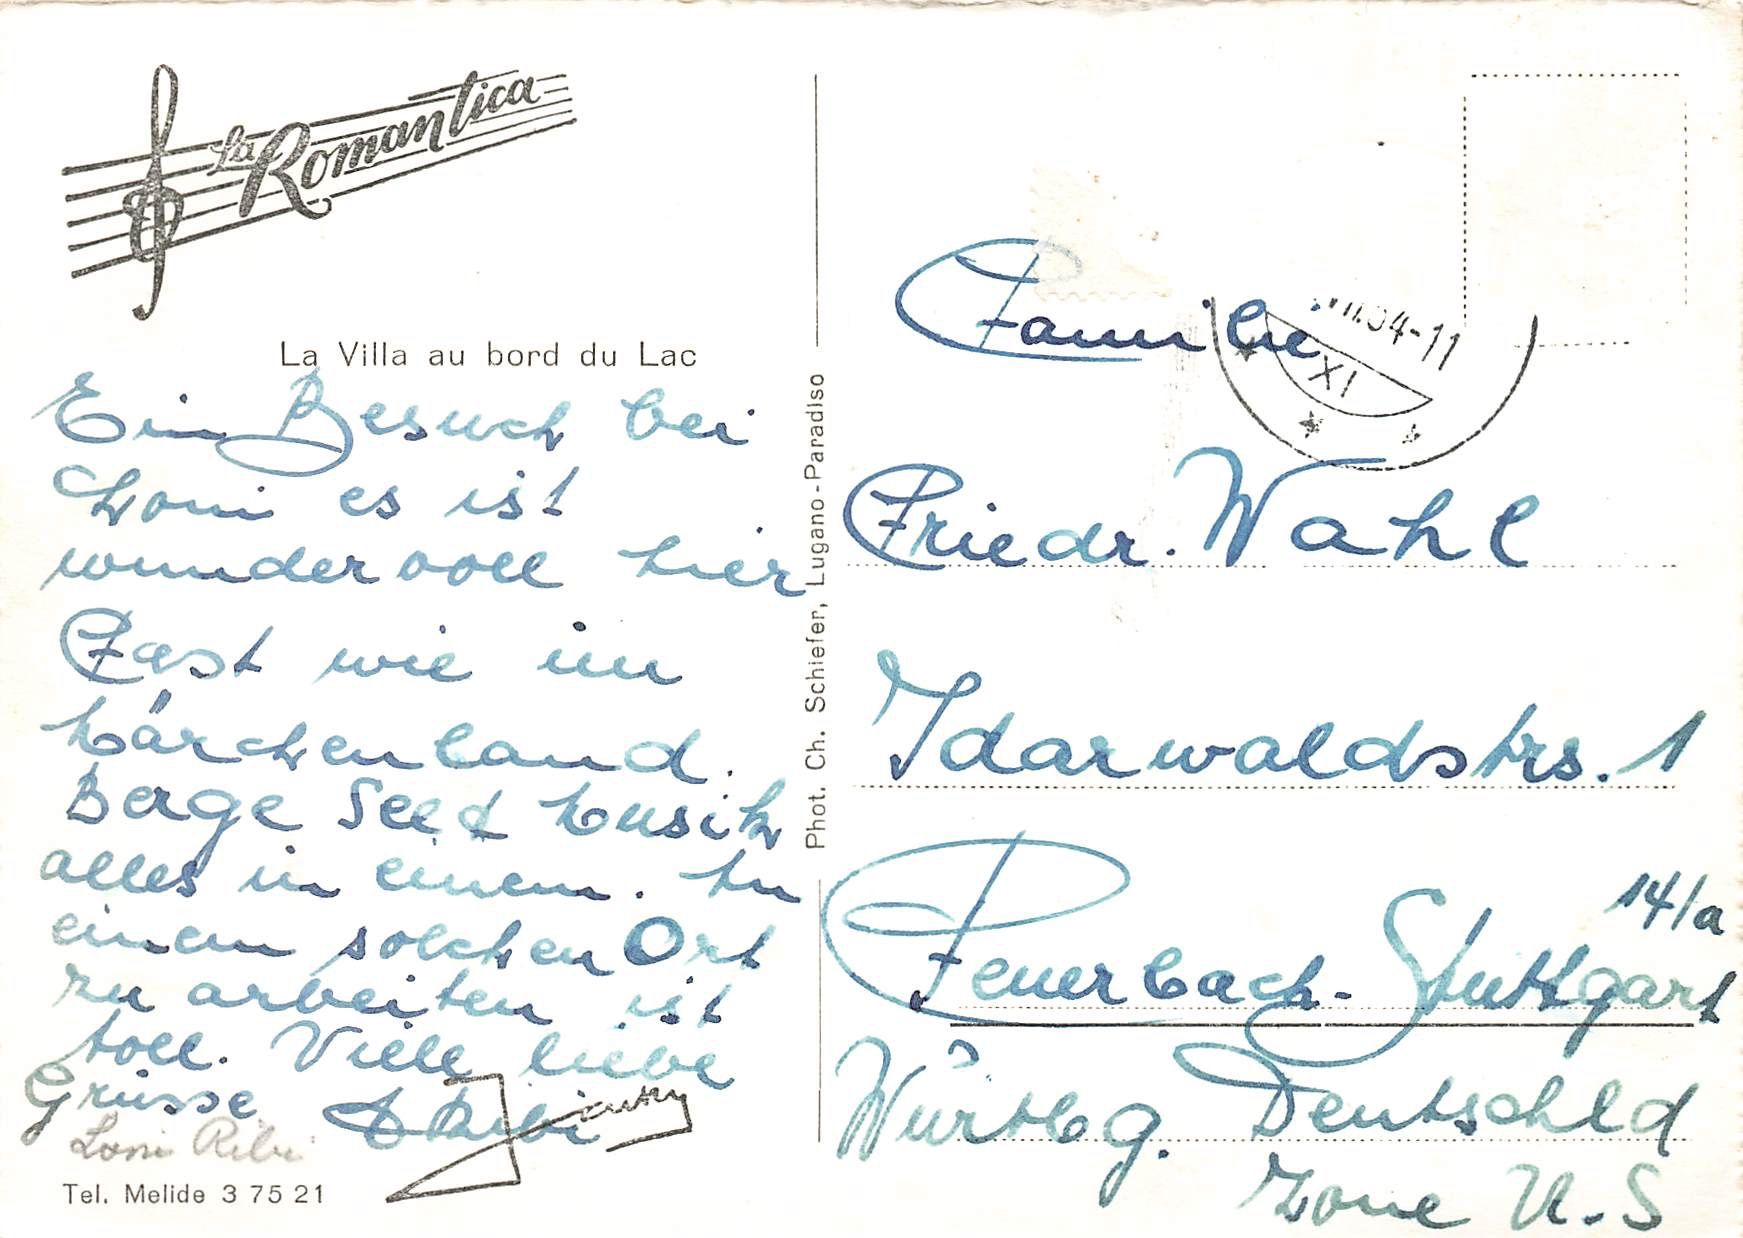 La Romantica
La Villa au bord du Lac
Ein Besuch bei
Loni es ist
wundervoll hier
Fast wie im
Märchenland.
Berge See & Musik
alles in einem. In
einem solchen Ort
zu arbeiten ist
toll. Viele liebe
Grüsse Ribi
Loni Ribi
Tel. Melide 3 75 21
Phot. Ch. Schiefer, Lugano-Paradiso
54-11
XI
Familie
Friedr. Wahl
Idarwaldstrs. 1
14/a
Feuerbach-Stuttgart
Württbg. Deutschld
Zone U.S